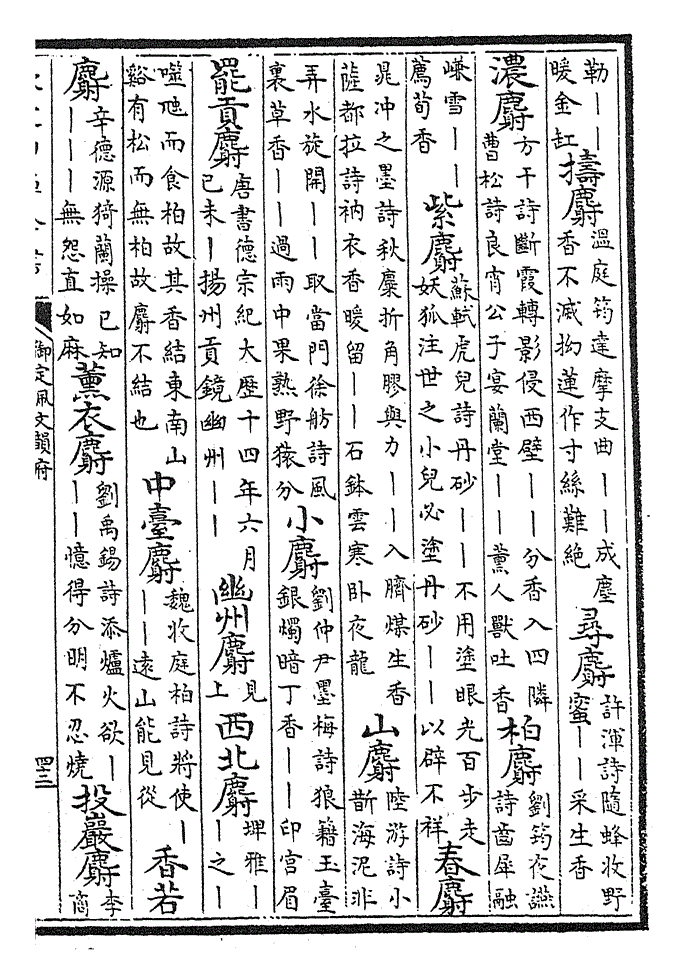 勒｜｜暖金缸擣麝溫庭筠達摩支曲｜｜成塵香不滅拗蓮作寸絲難絶尋麝許渾詩隨蜂收野蜜｜｜采生香
濃麝方干詩斷霞轉影侵西壁｜｜分香入四隣曹松詩良宵公子宴蘭堂｜｜薰人獸吐香柏麝劉筠夜讌詩酋犀融
嵰雪｜｜薦荀香紫麝蘇軾虎兒詩丹砂｜｜不用塗眼光百步走妖狐注世之小兒必塗丹砂｜｜以辟不祥春麝
晁沖之墨詩秋麋折角膠與力｜｜入臍煤生香薩都拉詩衲衣香暖留｜｜石鉢雲寒卧夜龍山麝陸游詩小斮海泥非
弄水旋開｜｜取當門徐舫詩風裏草香｜｜過雨中果熟野猿分小麝劉仲尹墨梅詩狼籍玉臺銀燭暗丁香｜｜印宮眉
罷貢麝唐書德宗紀大歷十四年六月己未｜揚州貢鏡幽州｜｜幽州麝見上西北麝埤雅｜｜之｜
噬虺而食柏故其香結東南山谿有松而無柏故麝不結也中臺麝魏收庭柏詩將使｜｜｜遠山能見從香若
麝辛德源猗蘭操已知｜｜｜無怨直如麻薰衣麝劉禹錫詩添爐火欲｜｜｜憶得分明不忍燒投巖麝李商
御定佩文韻府
四三